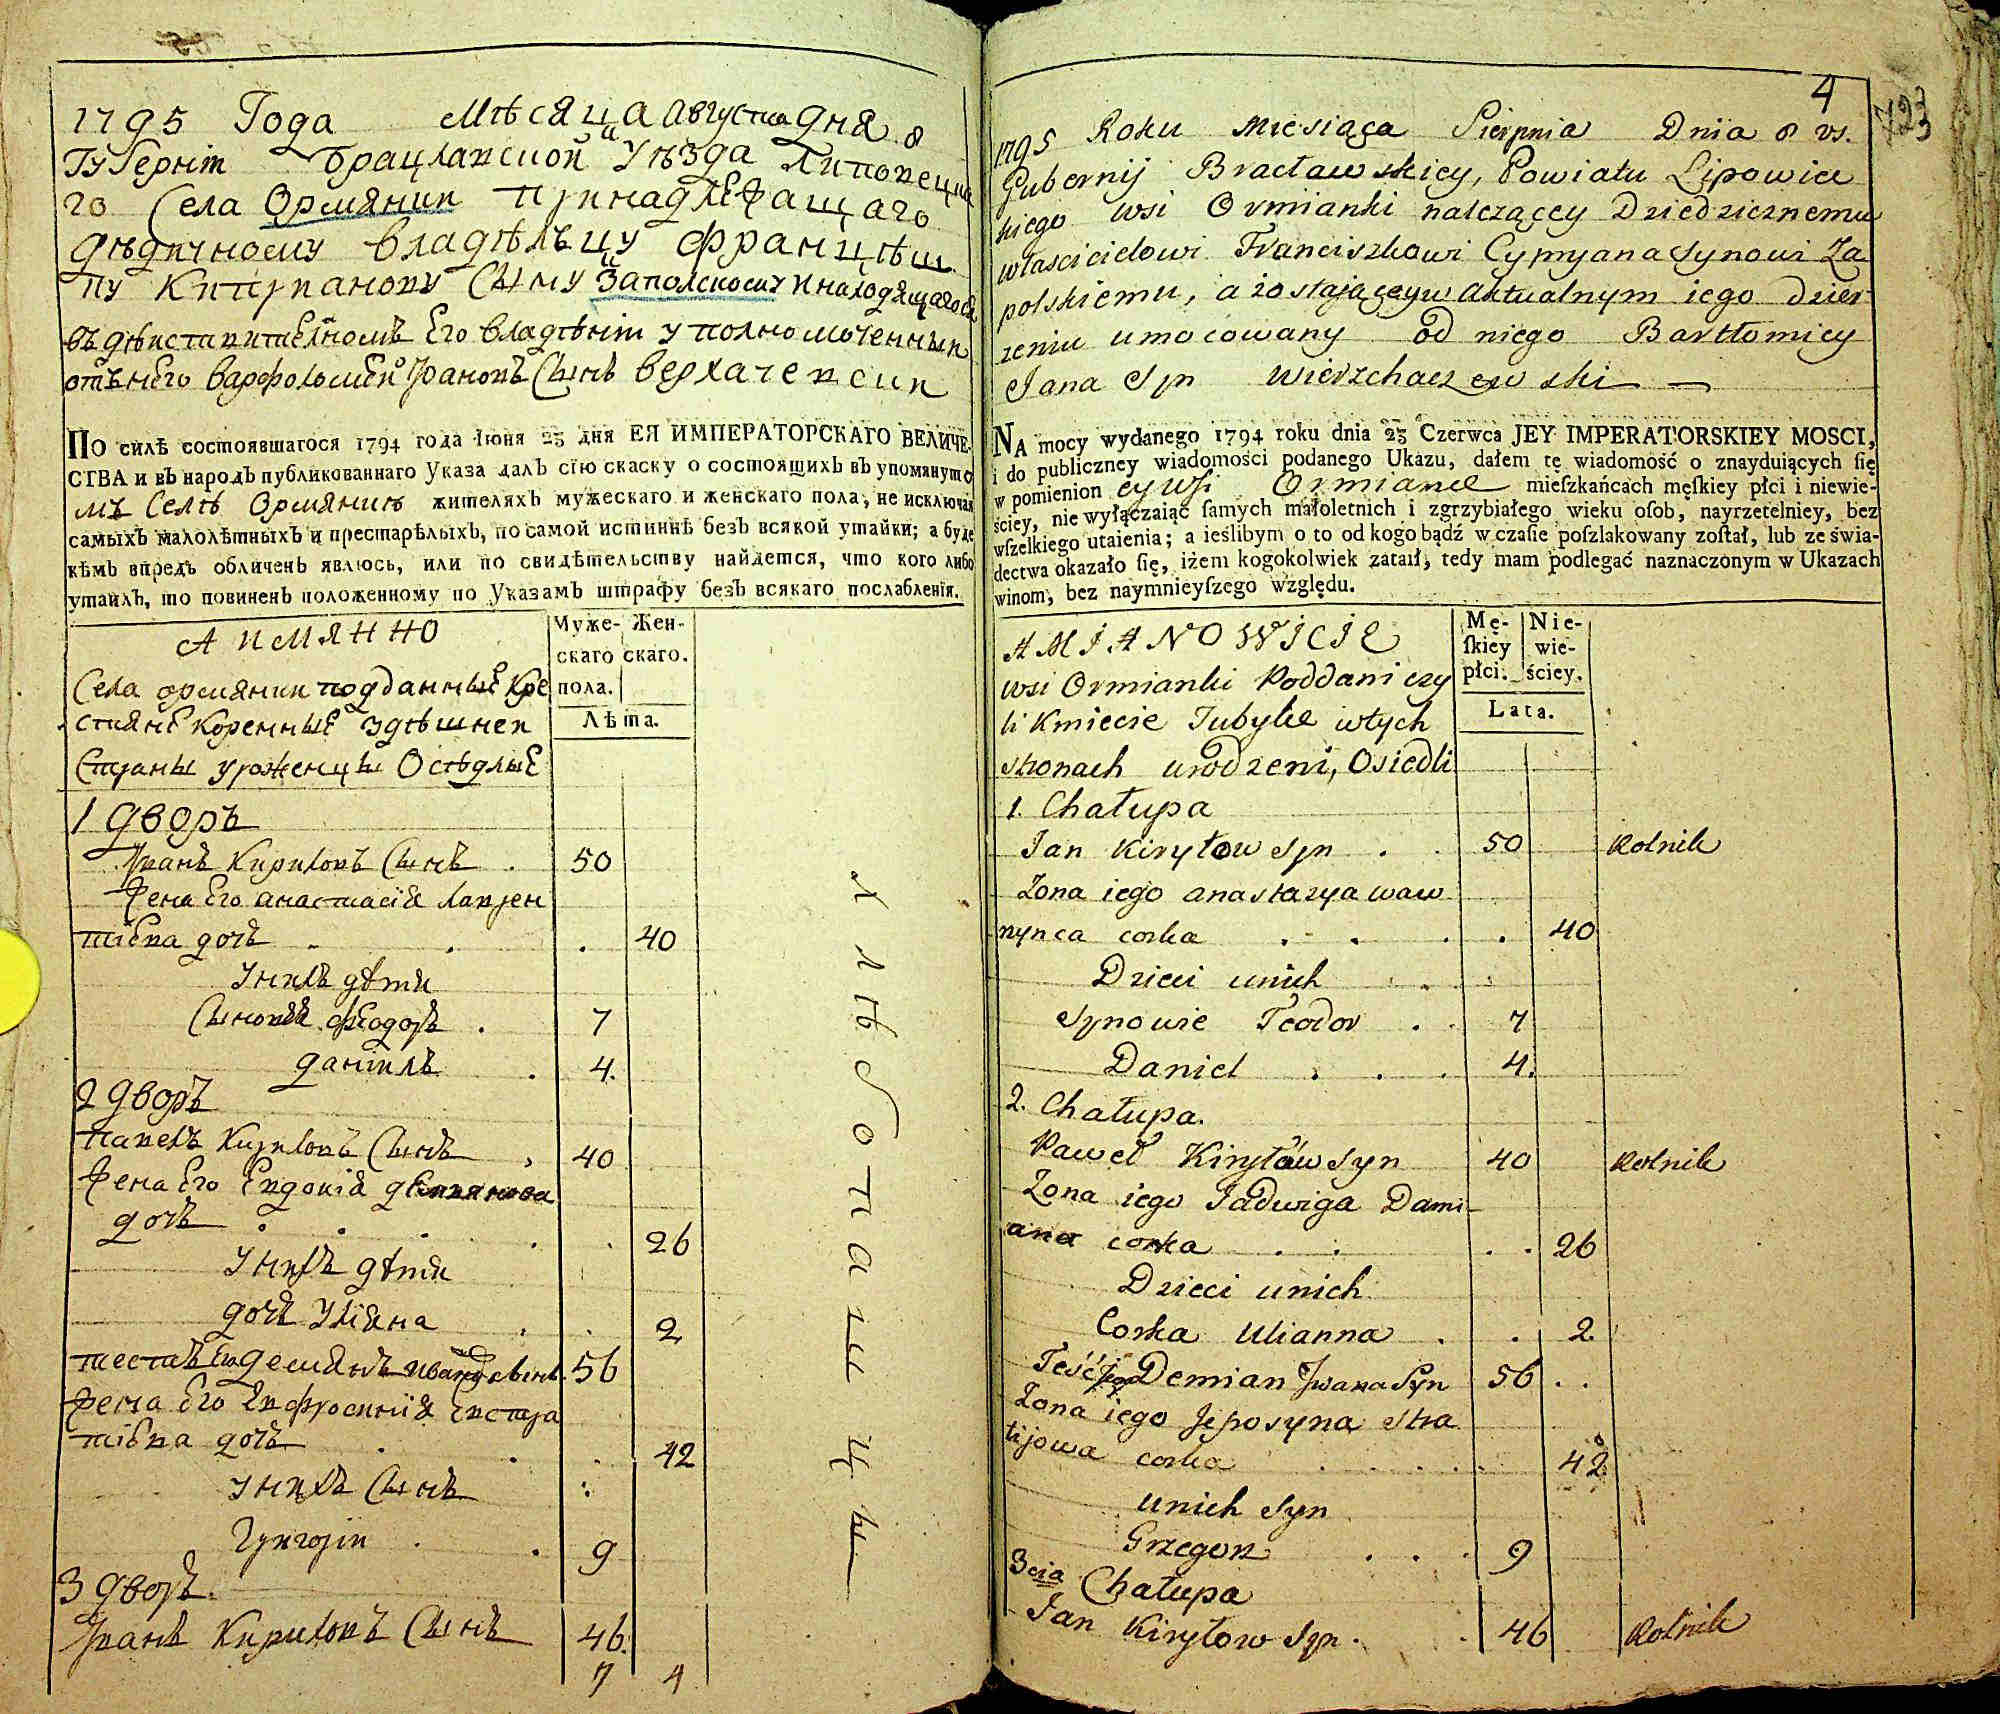 1795 Года Мѣсяца августа дня 8
Губерніи Брацлавской Уѣзда Липовецка
го Села Ормянки принадлежащаго
дѣдичному владѣльцу Францѣш
ку Киприанову Сыну Заполскому и находящагося
въ дѣиствителномъ Его владѣніи уполномоченныи
отъ нЕго варфоломеи Ивановъ Сынъ верхачевскии
ПО силѣ состоявшагося 1794 года Іюня 23 дня ЕЯ ИМПЕРАТОРСКАГО ВЕЛИЧЕ-
СТВА и въ народъ публикованнаго Указа далъ сїю скаску о состоящихъ въ упомянуто
мъ Селѣ Ормянкѣ жителяхъ мужескаго и женскаго пола, не исключая
самыхъ малолѣтныхъ и престарѣлыхъ, по самой истиннѣ безъ всякой утайки; а буде
кѣмъ впредь обличенъ явлюсь, или по свидѣтельству найдется, что кого либо
утаилъ, то повиненъ положенному по Указамъ штрафу безъ всякаго послабленїя.
А ИМЯННО
Муже- Жен-
скаго скаго.
пола.
Лѣта.
Села ормянки подданныЕ Кре
стиянЕ КоренныЕ здѣшнеи
Страны уроженцы ОсѣдлыЕ
1 дворъ
Иванъ Кириловъ Сынъ . 50
жена Его анастасія лаврен
тіева дочъ . . . 40
У нихъ дѣти
Сыновья феодоръ . 7
даніилъ . 4.
2 дворъ
павелъ Кириловъ Сынъ , 40
жена Его Евдокія демянова
дочъ . . . . . 26
У нихъ дѣти
дочъ Уліяна . . 2
тестъ Его демянъ ивановъ сынъ 56
жена Его Евфросинія Евстра
тіева дочъ . . . 42
У нихъ Сынъ
Григоріи . . 9
3 дворъ.
Иванъ Кириловъ Сынъ 46.
7 4
ллѣботапицы
4
723
1795 Roku Miesiąca Sierpnia Dnia 8 vs.
Gubernij Bracławskiey, Powiatu Lipowiec
kiego wsi Ormianki nalczącey Dziedzicznemu
właścicielowi Franciszkowi Cypryana synowi Za
polskiemu, a zostającey w Aktualnym iego dzier
zeniu umocowany od niego Bartłomiey
Jana Syn Wierzchaczewski —
NA mocy wydanego 1794 roku dnia 23 Czerwca JEY IMPERATORSKIEY MOSCI,
i do publiczney wiadomości podanego Ukazu, dałem tę wiadomość o znayduiących ſię
w pomienion ey Wsi Ormiance mieſzkańcach męſkiey płci i niewie-
ściey, nie wyłączaiąc ſamych małoletnich i zgrzybiałego wieku oſob, nayrzetelniey, bez
wſzelkiego utaienia; a ieślibym o to od kogo bądź w czaſie poſzlakowany zoſtał, lub ze świa-
dectwa okazało ſię, iżem kogokolwiek zataił, tedy mam podlegać naznaczonym w Ukazach
winom, bez naymnieyſzego względu.
AMIANOWICIE
Mę- Nie-
ſkiey wie-
płci. ściey.
Lata.
wsi Ormianki Poddani czy
li Kmiecie Tubylce w tych
stronach urodzeni, Osiedli
1. Chałupa
Jan Kiryłow syn . . 50 Rolnik
Zona iego anastazya waw
rzynca corka . . . . 40
Dzieci unich
Synowie Teodor . . 7
Daniel . . . 4.
2. Chałupa.
Paweł Kiryłów syn 40 Rolnik
Zona iego Jadwiga Dami
ana corka . . . . 26
Dzieci unich
Corka Ulianna . . 2.
Teść Jego Demian Jwana Syn 56 . .
Zona iego Jeposyna Stra
tijowa corka . . . . 42
unich syn
Grzegorz . . . 9
3cia Chałupa
Jan Kiryłow syn . . 46 Rolnik